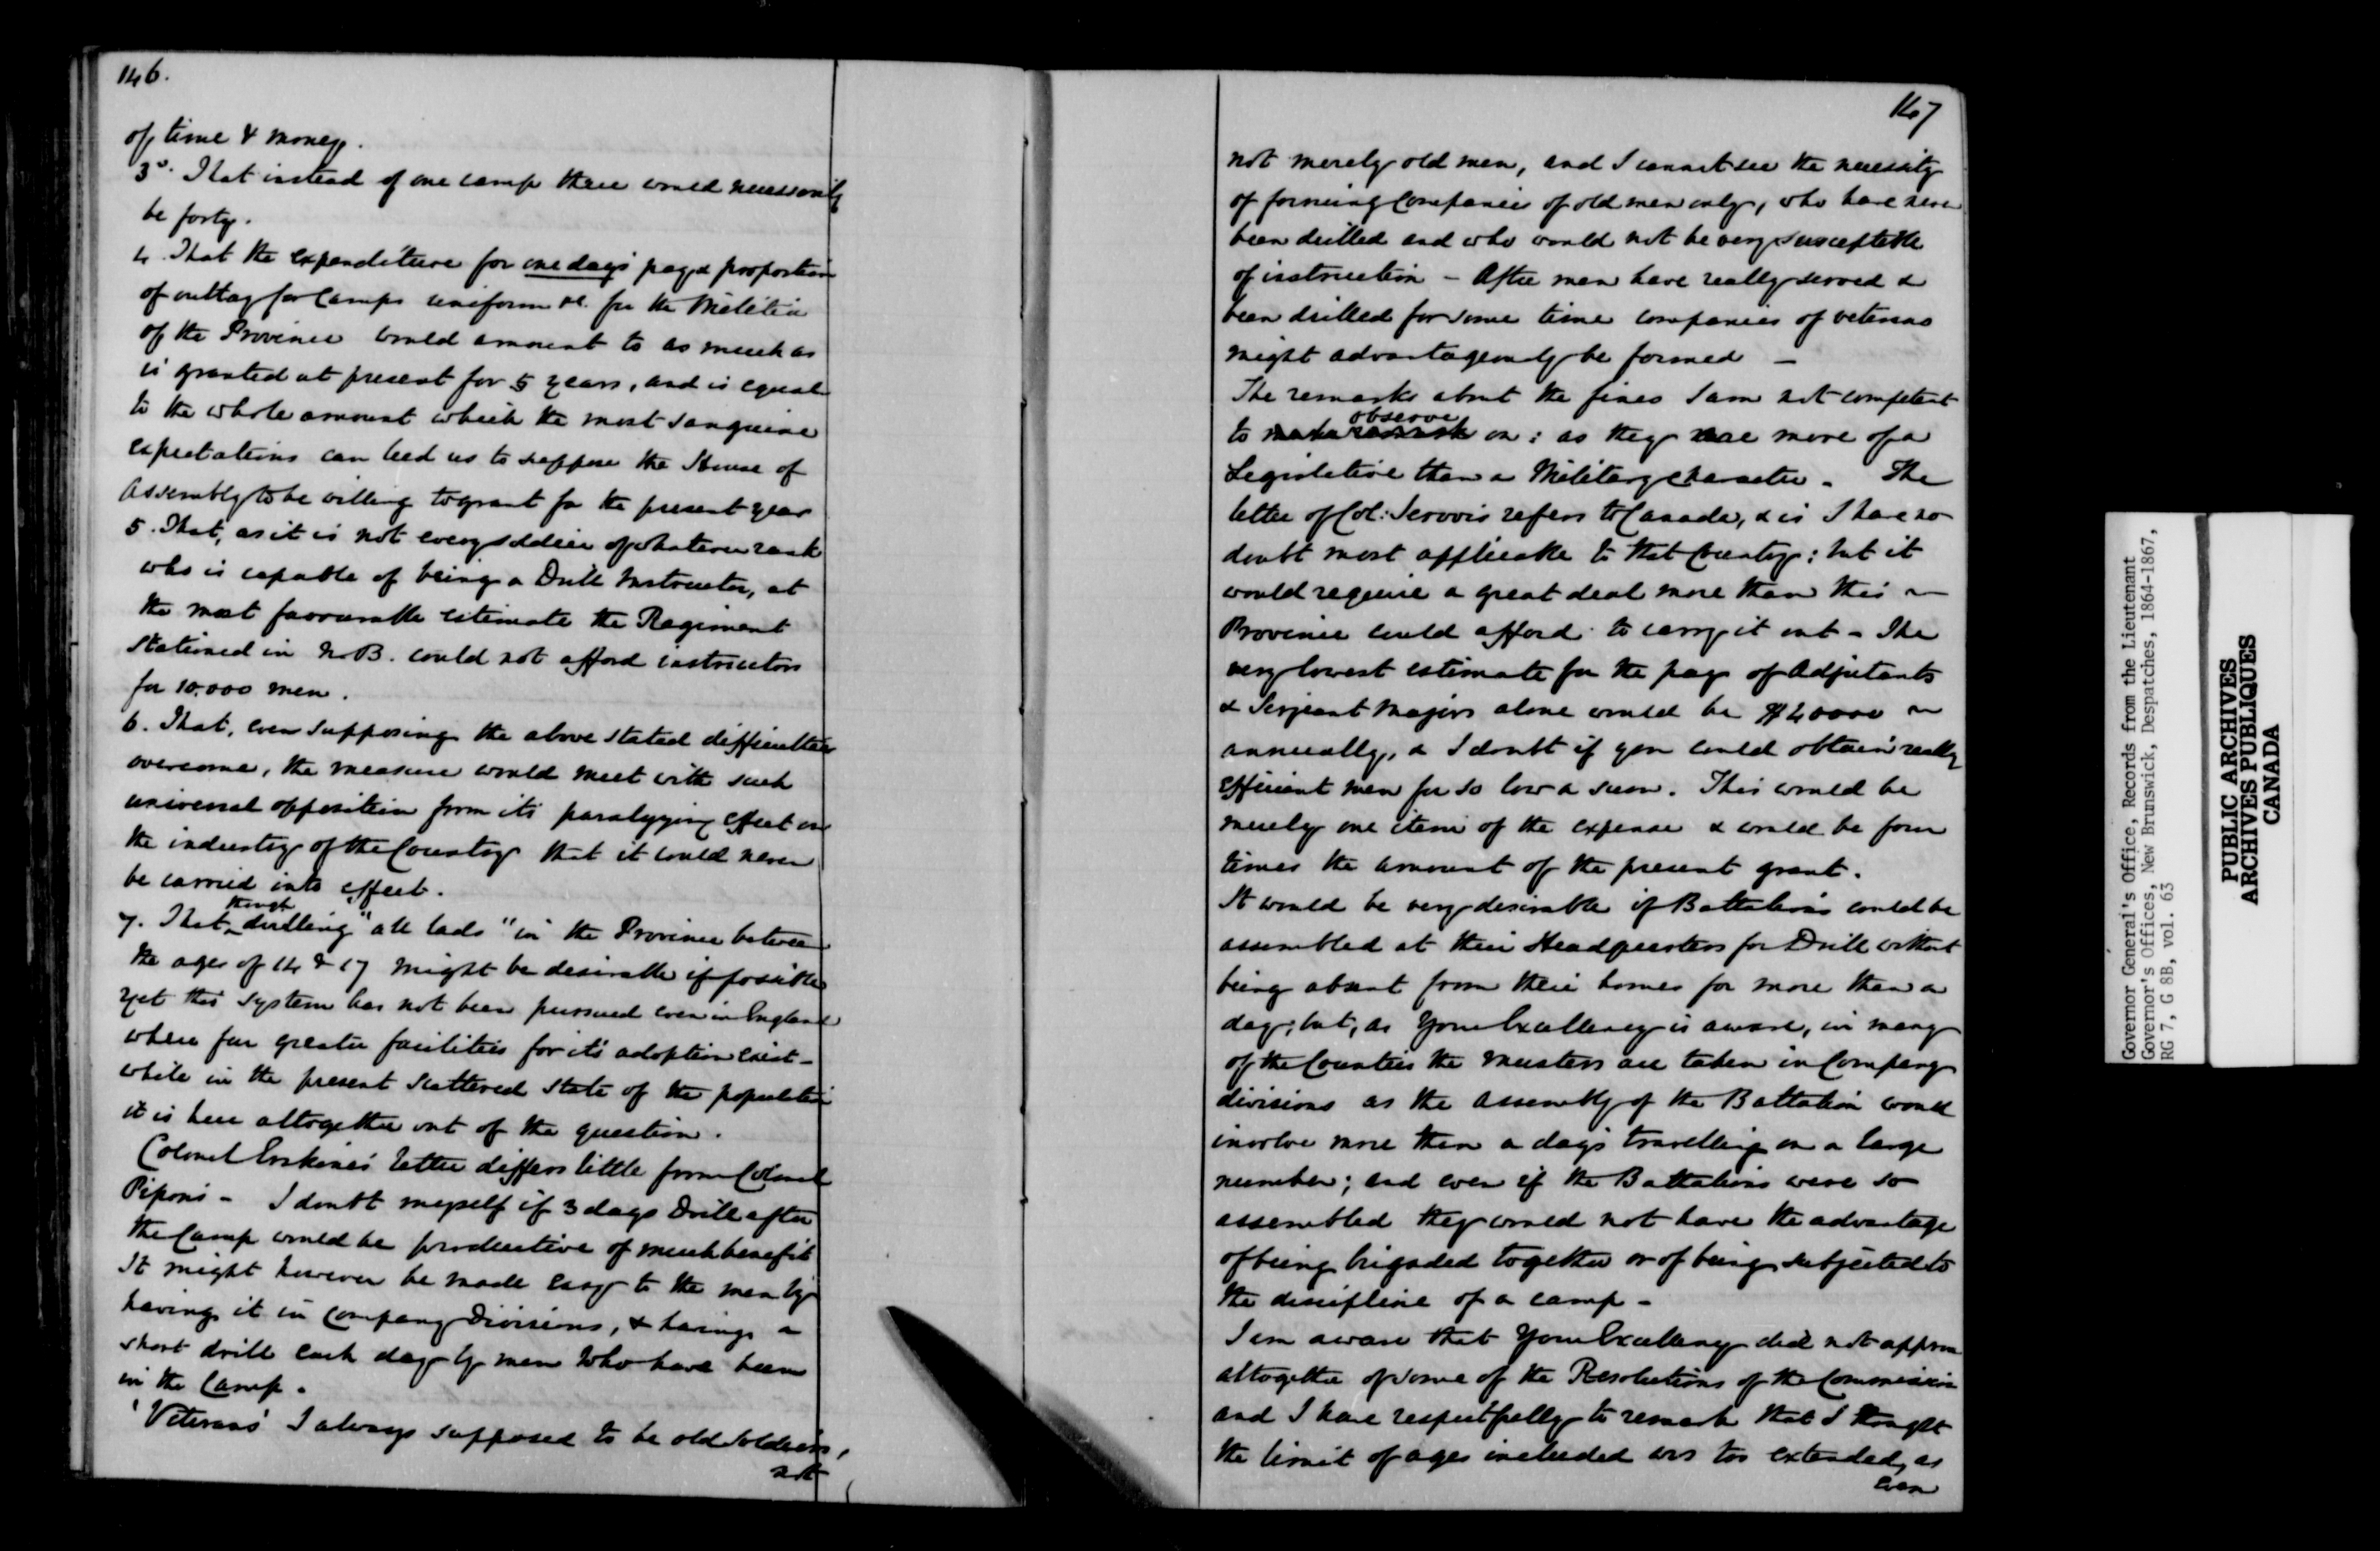 146.
of time & money.
3º. That instead of one camp there would necessarily
be forty.
4. That the expenditure for one days pay & proportion
of outlay for Camps uniform &c. for the Militia
of the Province would amount to as much as
is granted at present for 5 years, and is equal
to the whole amount which the most sanguine
expectations can lead us to suppose the House of
Assembly to be willing to grant for the present year
5. That, as it is not every soldier of whatever rank
who is capable of being a Drill Instructor, at
the most favourable estimate the Regiment
stationed in N.B. could not afford instructors
for 10.000 men.
6. That, even supposing the above stated difficulties
overcome, the measure would meet with such
universal opposition from its paralyzing effect on
the industry of the Country that it could never
be carried into effect.
though
7. That drilling "all lads" in the Province between
the ages of 14 & 17 might be desirable if possible
yet this system has not been pursued even in England
where far greater facilities for its adoption exist -
while in the present scattered state of the population
it is here altogether out of the question.
Colonel Erskine's letter differs little from Colonel
Pipon's - I doubt myself if 3 days Drill after
the Camp would be productive of much benefit
It might however be made easy to the men by
having it in Company Divisions, & having a
short drill each day by men who have been
in the Camp.
'Veterans' I always supposed to be old soldiers,
not
147
not merely old men, and I cannot see the necessity
of forming Companies of old men only, who have never
been drilled and who would not be very susceptible
of instruction - After men have really served &
been drilled for some time companies of veterans
might advantageously be formed -
The remarks about the fines I am not competent
observe
to make remark on: as they are more of a
Legislative than a Military character. The
letter of Col: Jervois refers to Canada, & is I have no
doubt most applicable to that Country: but it
would require a great deal more than this
Province could afford to carry it out - The
very lowest estimate for the pay of Adjutants
& Serjeant Majors alone would be $40000
annually, & I doubt if you could obtain really
efficient men for so low a sum. This would be
merely one item of the expense & would be four
times the amount of the present grant.
It would be very desirable if Battalions could be
assembled at their Headquarters for Drill without
being absent from their homes for more than a
day; but, as Your Excellency is aware, in many
of the Counties the musters are taken in Company
divisions as the assembly of the Battalion would
involve more than a day's travelling on a large
number; and even if the Battalions were so
assembled they would not have the advantage
of being brigaded together or of being subjected to
the discipline of a camp -
I am aware that Your Excellency did not approve
altogether of some of the Resolutions of the Commission
and I have respectfully to remark that I thought
the limit of ages included was too extended, as
even
Governor General's Office, Records from the Lieutenant
Governor's Offices, New Brunswick, Despatches, 1864-1867,
RG 7, G 8B, vol. 63
PUBLIC ARCHIVES
ARCHIVES PUBLIQUES
CANADA